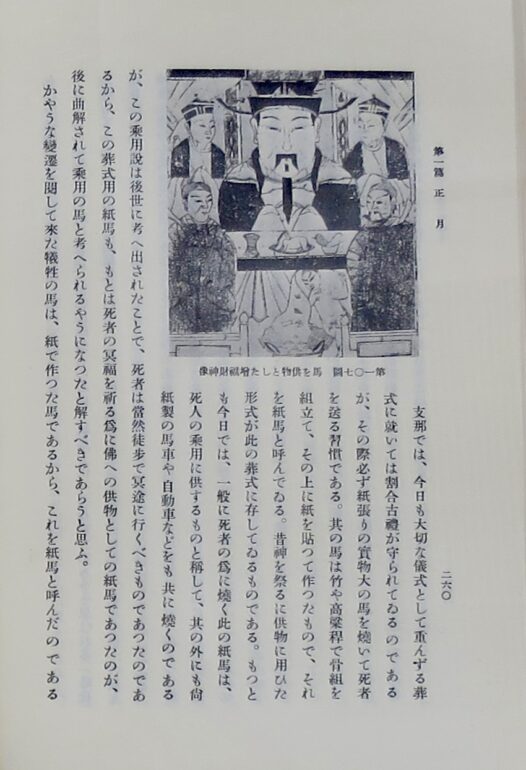 第一篇 正月
二六〇
像神財福增たしと物供を馬 圖七〇一第
支那では、今日も大切な儀式として重んずる葬
式に就いては割合古禮が守られてゐるのである
が、その際必ず紙張りの實物大の馬を燒いて死者
を送る習慣である。其の馬は竹や高粱稈で骨組を
組立て、その上に紙を貼つて作つたもので、それ
を紙馬と呼んでゐる。昔神を祭るに供物に用ひた
形式が此の葬式に存してゐるものである。もつと
も今日では、一般に死者の爲に燒く此の紙馬は、
死人の乘用に供するものと稱して、其の外にも尙
紙製の馬車や自動車などをも共に燒くのである
が、この乘用說は後世に考へ出されたことで、死者は當然徒步で冥途に行くべきものであつたのであ
るから、この葬式用の紙馬も、もとは死者の冥福を祈る爲に佛への供物としての紙馬であつたのが、
後に曲解されて乘用の馬と考へられるやうになつたと解すべきであらうと思ふ。
かやうな變遷を閱して來た犧牲の馬は、紙で作つた馬であるから、これを紙馬と呼んだのである